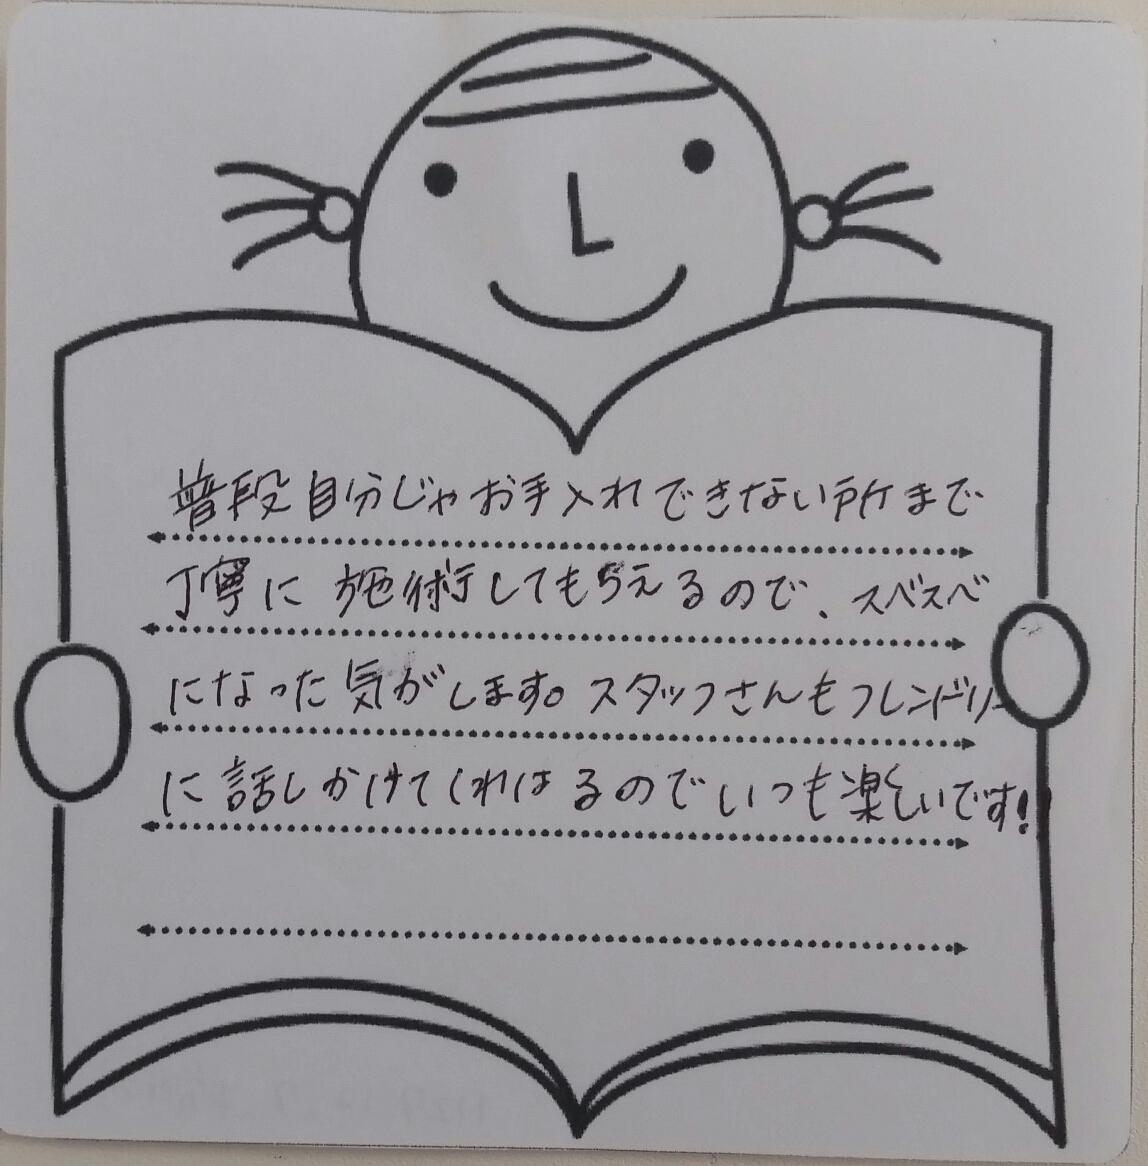 普段自分じゃお手入れできない所まで
丁寧に施術してもらえるので、スベスベ
になった気がします。スタッフさんもフレンドリー
に話しかけてくれはるのでいつも楽しいです!